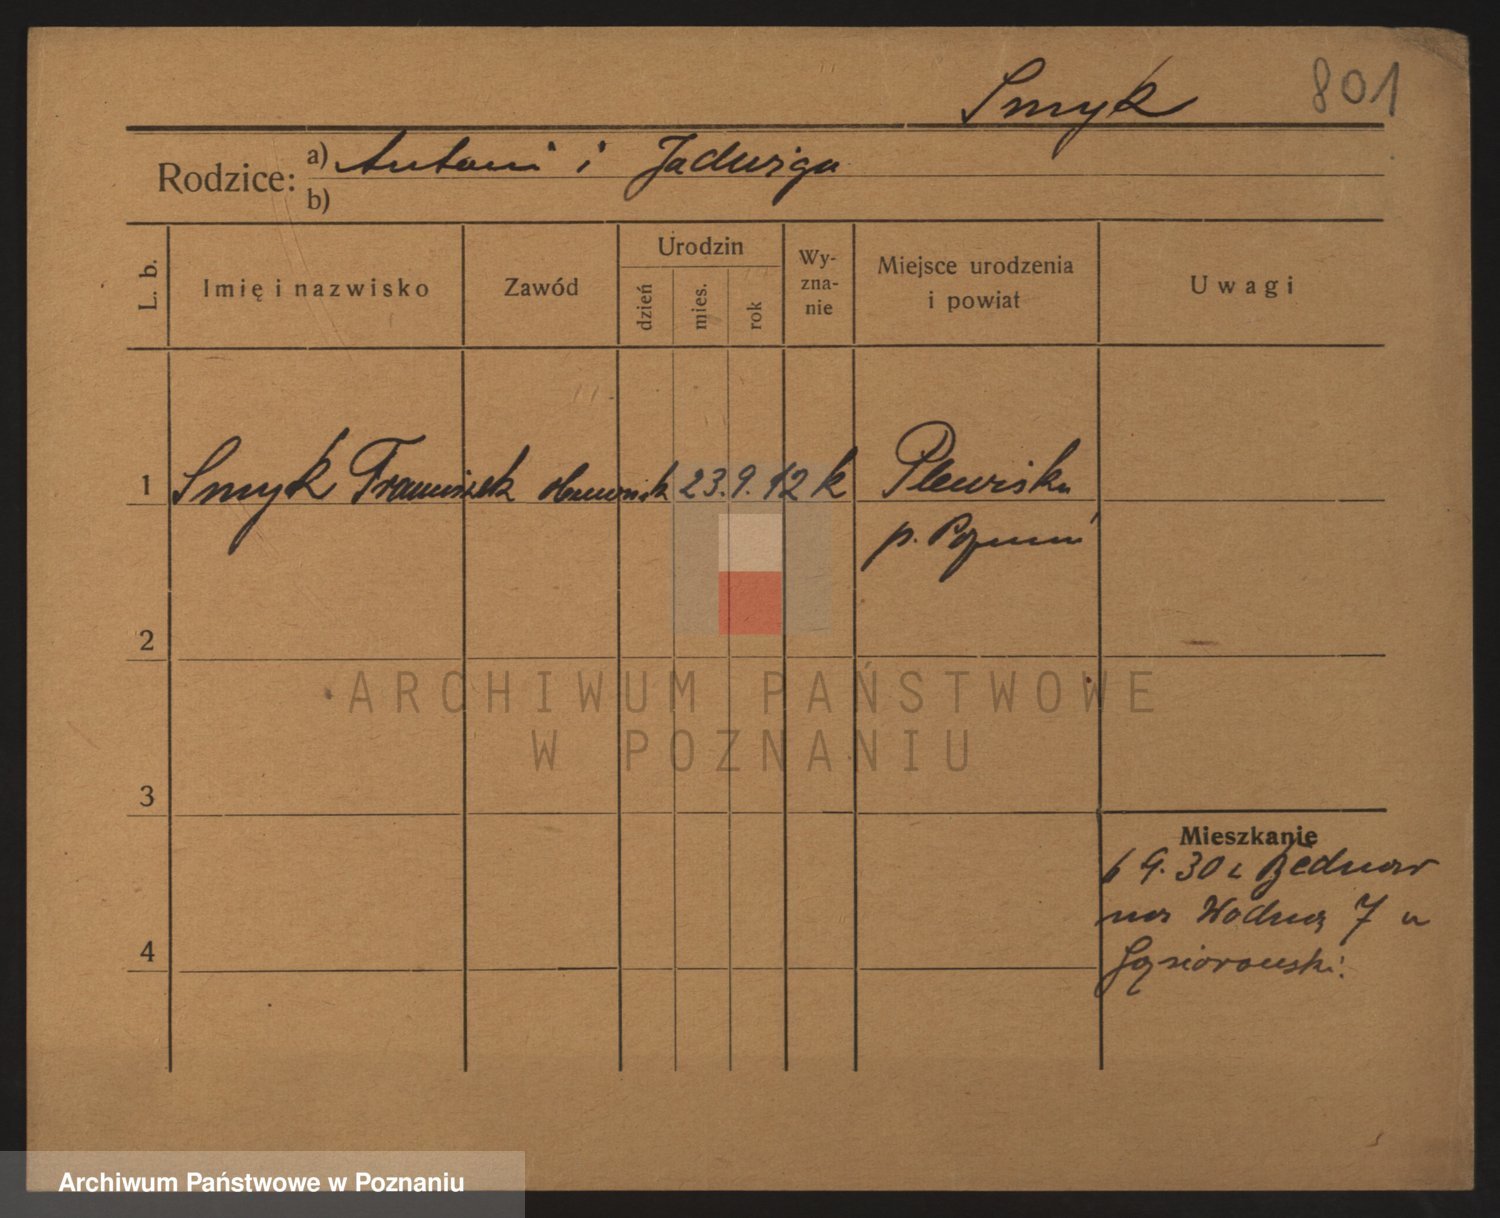 Smyk 801
Rodzice: a) Antoni i Jadwiga
b)
L. b. Imię i nazwisko Zawód Urodzin dzień mies. rok Wyznanie Miejsce urodzenia i powiat Uwagi
1 Smyk Franciszek obuwnik 23. 9. 12 k Plewiska
p. Poznań
2
3
4
Mieszkanie
9. 30 z Bednar
na Wodna 7 u
Gąsiorowski.
ARCHIWUM PAŃSTWOWE
W POZNANIU
Archiwum Państwowe w Poznaniu